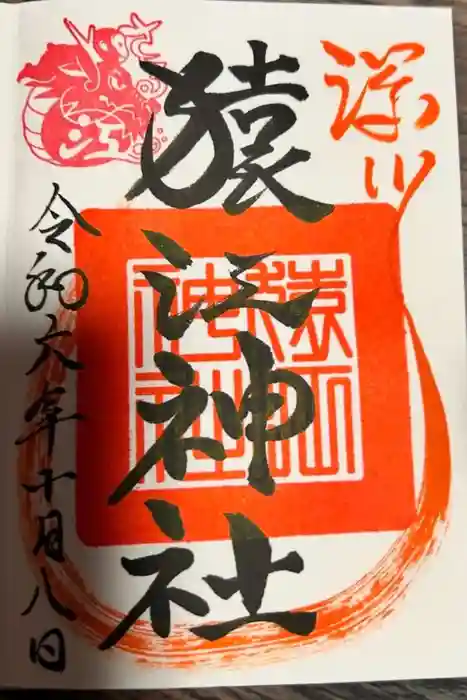 深川
猿江神社
猿江神社
さる江
令和六年十月八日